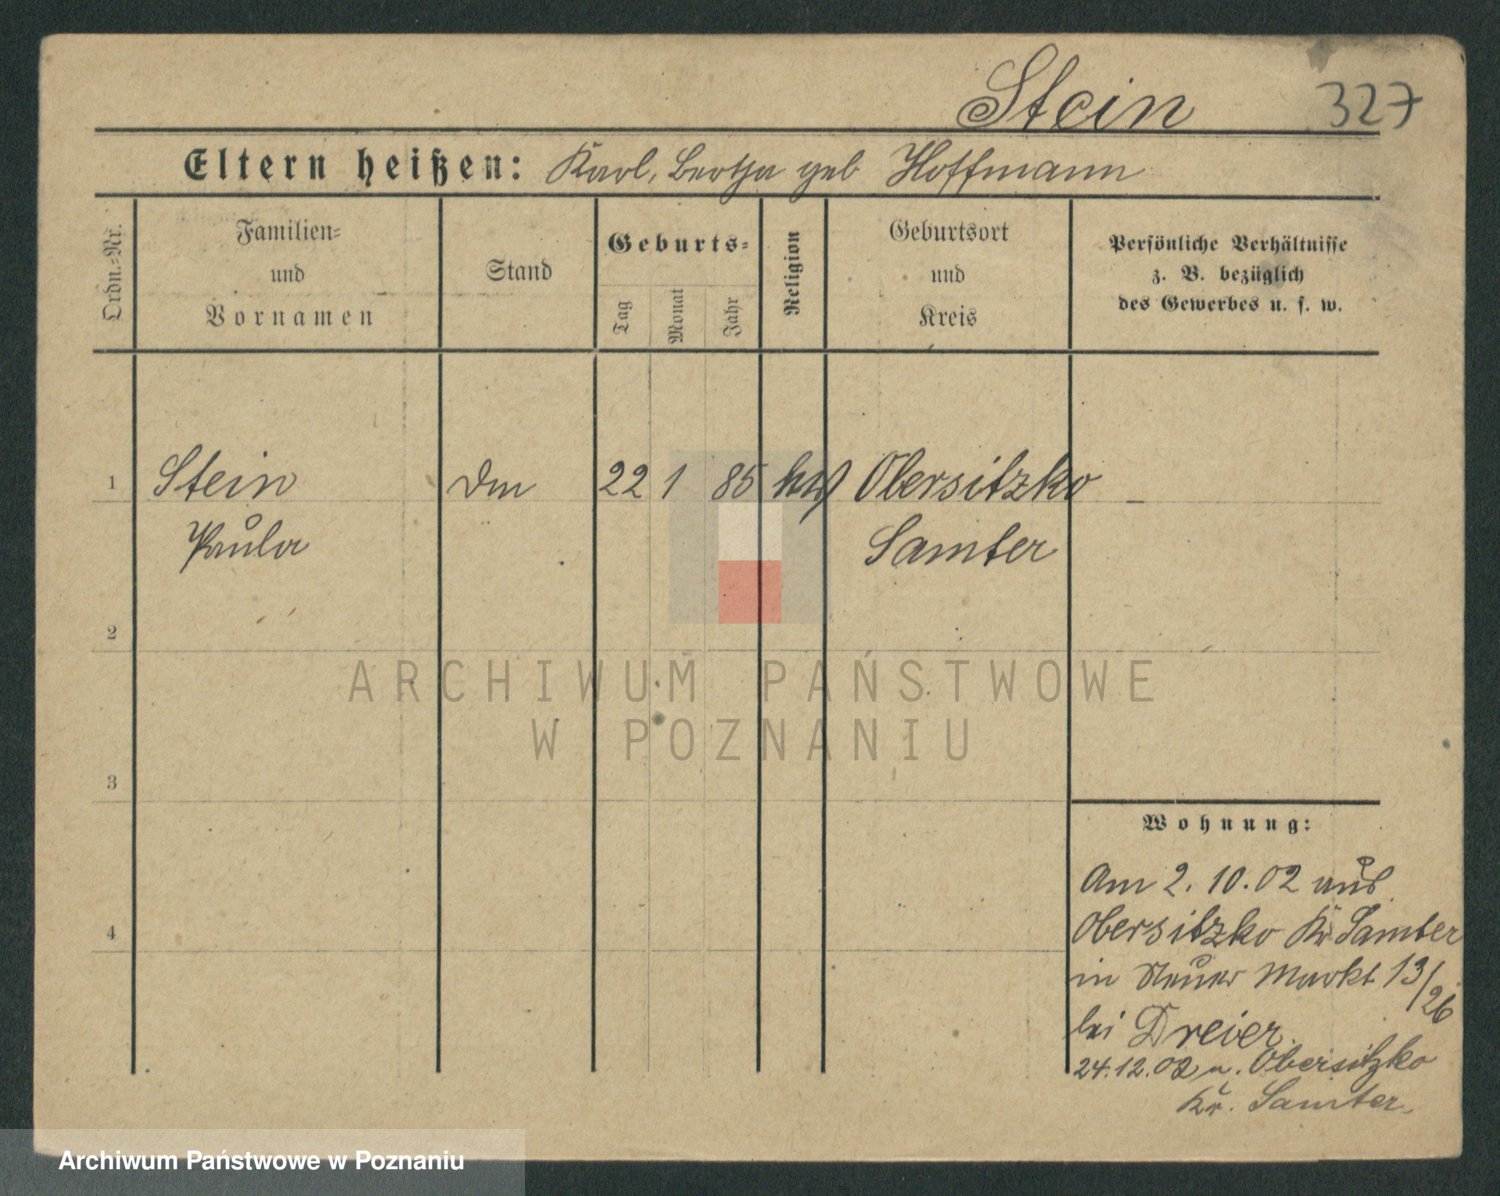 Stein 327
Eltern heißen: Karl, Bertha geb Hoffmann
Ordn.-Nr.
Familien-
und
Vornamen
Stand
Geburts-
Tag
Monat
Jahr
Religion
Geburtsort
und
Kreis
Persönliche Verhältnisse
z. B. bezüglich
des Gewerbes u. s. w.
1 Stein 22 1 85 Obersitzko –
Paula Samter
2
3
4
Wohnung:
Am 2.10.02 aus
Obersitzko Kr Samter
in Neuer Markt 13/26
bei Dreier.
24.12.02 n. Obersitzko
Kr. Samter.
ARCHIWUM PAŃSTWOWE
W POZNANIU
Archiwum Państwowe w Poznaniu